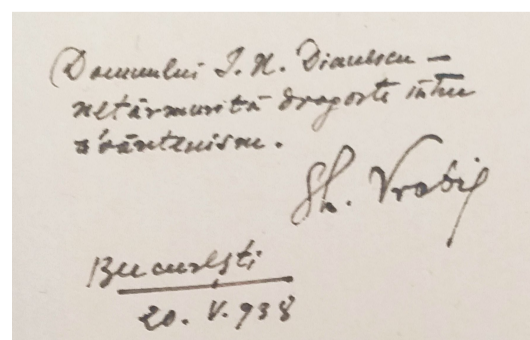 Domnului I. N. Dianescu —
netărmurită dragoste întru
săvântenism.
Gh. Vrabie
București
20. V. 938